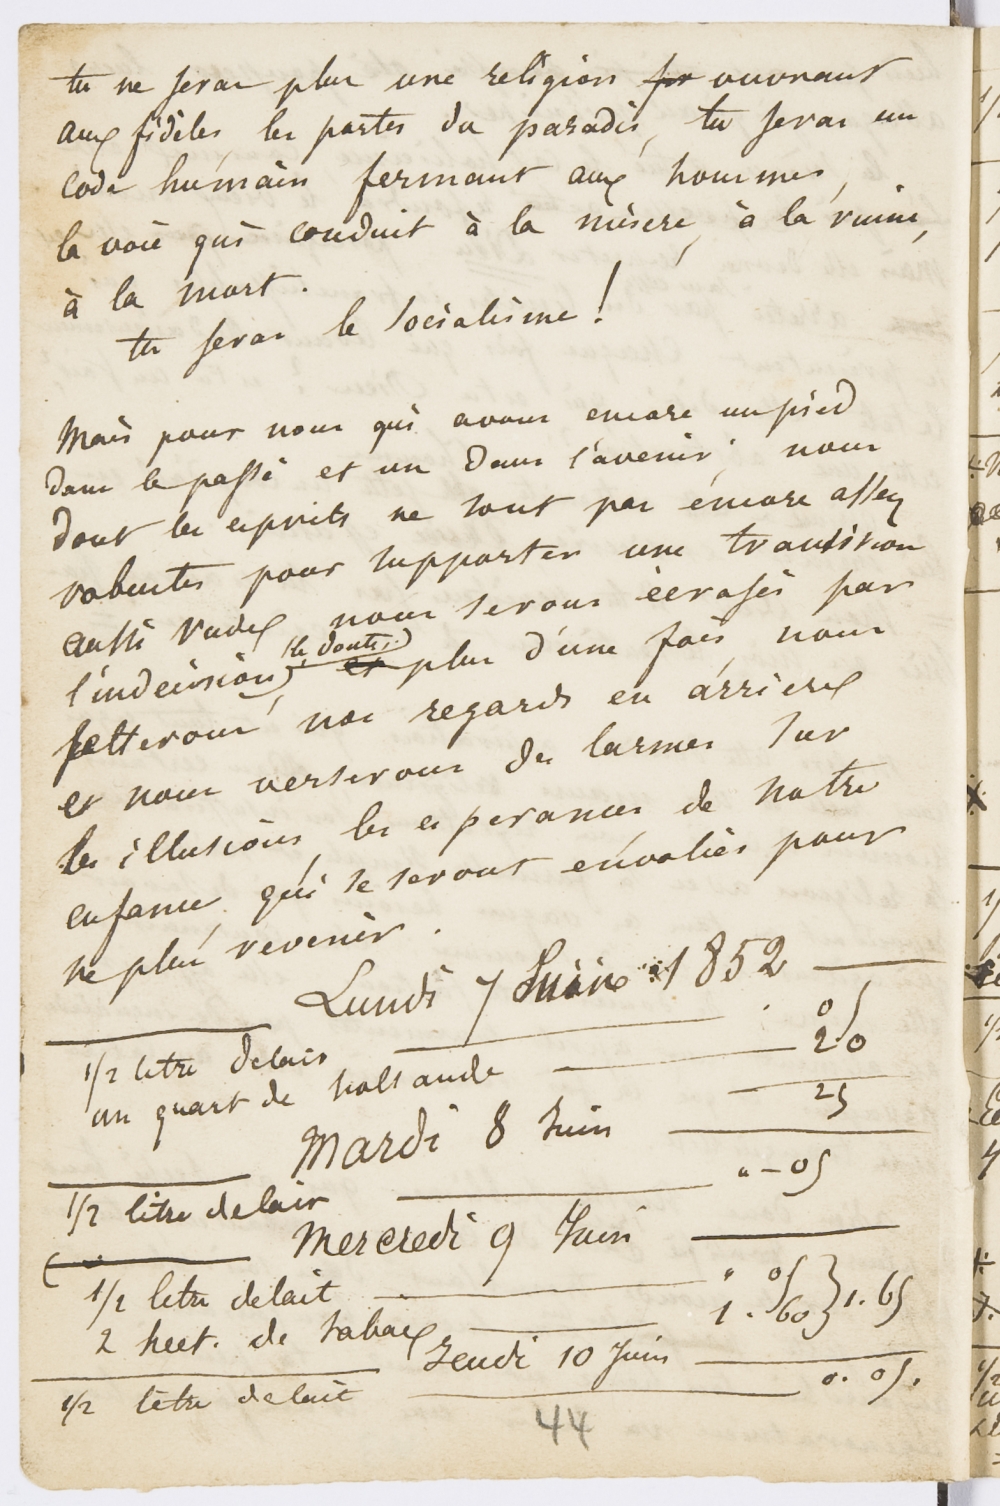 tu ne seras plus une religion ouvrant
aux fidèles, les portes du paradis, tu seras un
code humain fermant aux hommes,
la voie qui conduit à la misere, à la ruine,
à la mort.
tu seras le Socialisme!
Mais pour nous qui avons encore un pied
dans le passé et un dans l'avenir; nous
dont les esprits ne sont pas encore assez
robustes pour supporter une transition
aussi rude, nous serons écrasés par
l'indécision, (le doute,)
et plus d'une fois, nous
jetterons, nos regards en arriere
et nous verserons des larmes sur
les illusions, les esperances de notre
enfance, qui se seront envolées pour
ne plus revenir.
Lundi 7 Juin 1852
1/2 litre de lait 05
un quart de hollande 20
25
Mardi 8 Juin
1/2 litre de lait " - 05
Mercredi 9 Juin
1/2 litre de lait " 05
2 hect. de tabac 1. 60 } 1. 65
Jeudi 10 Juin
1/2 litre de lait 0. 05.
44